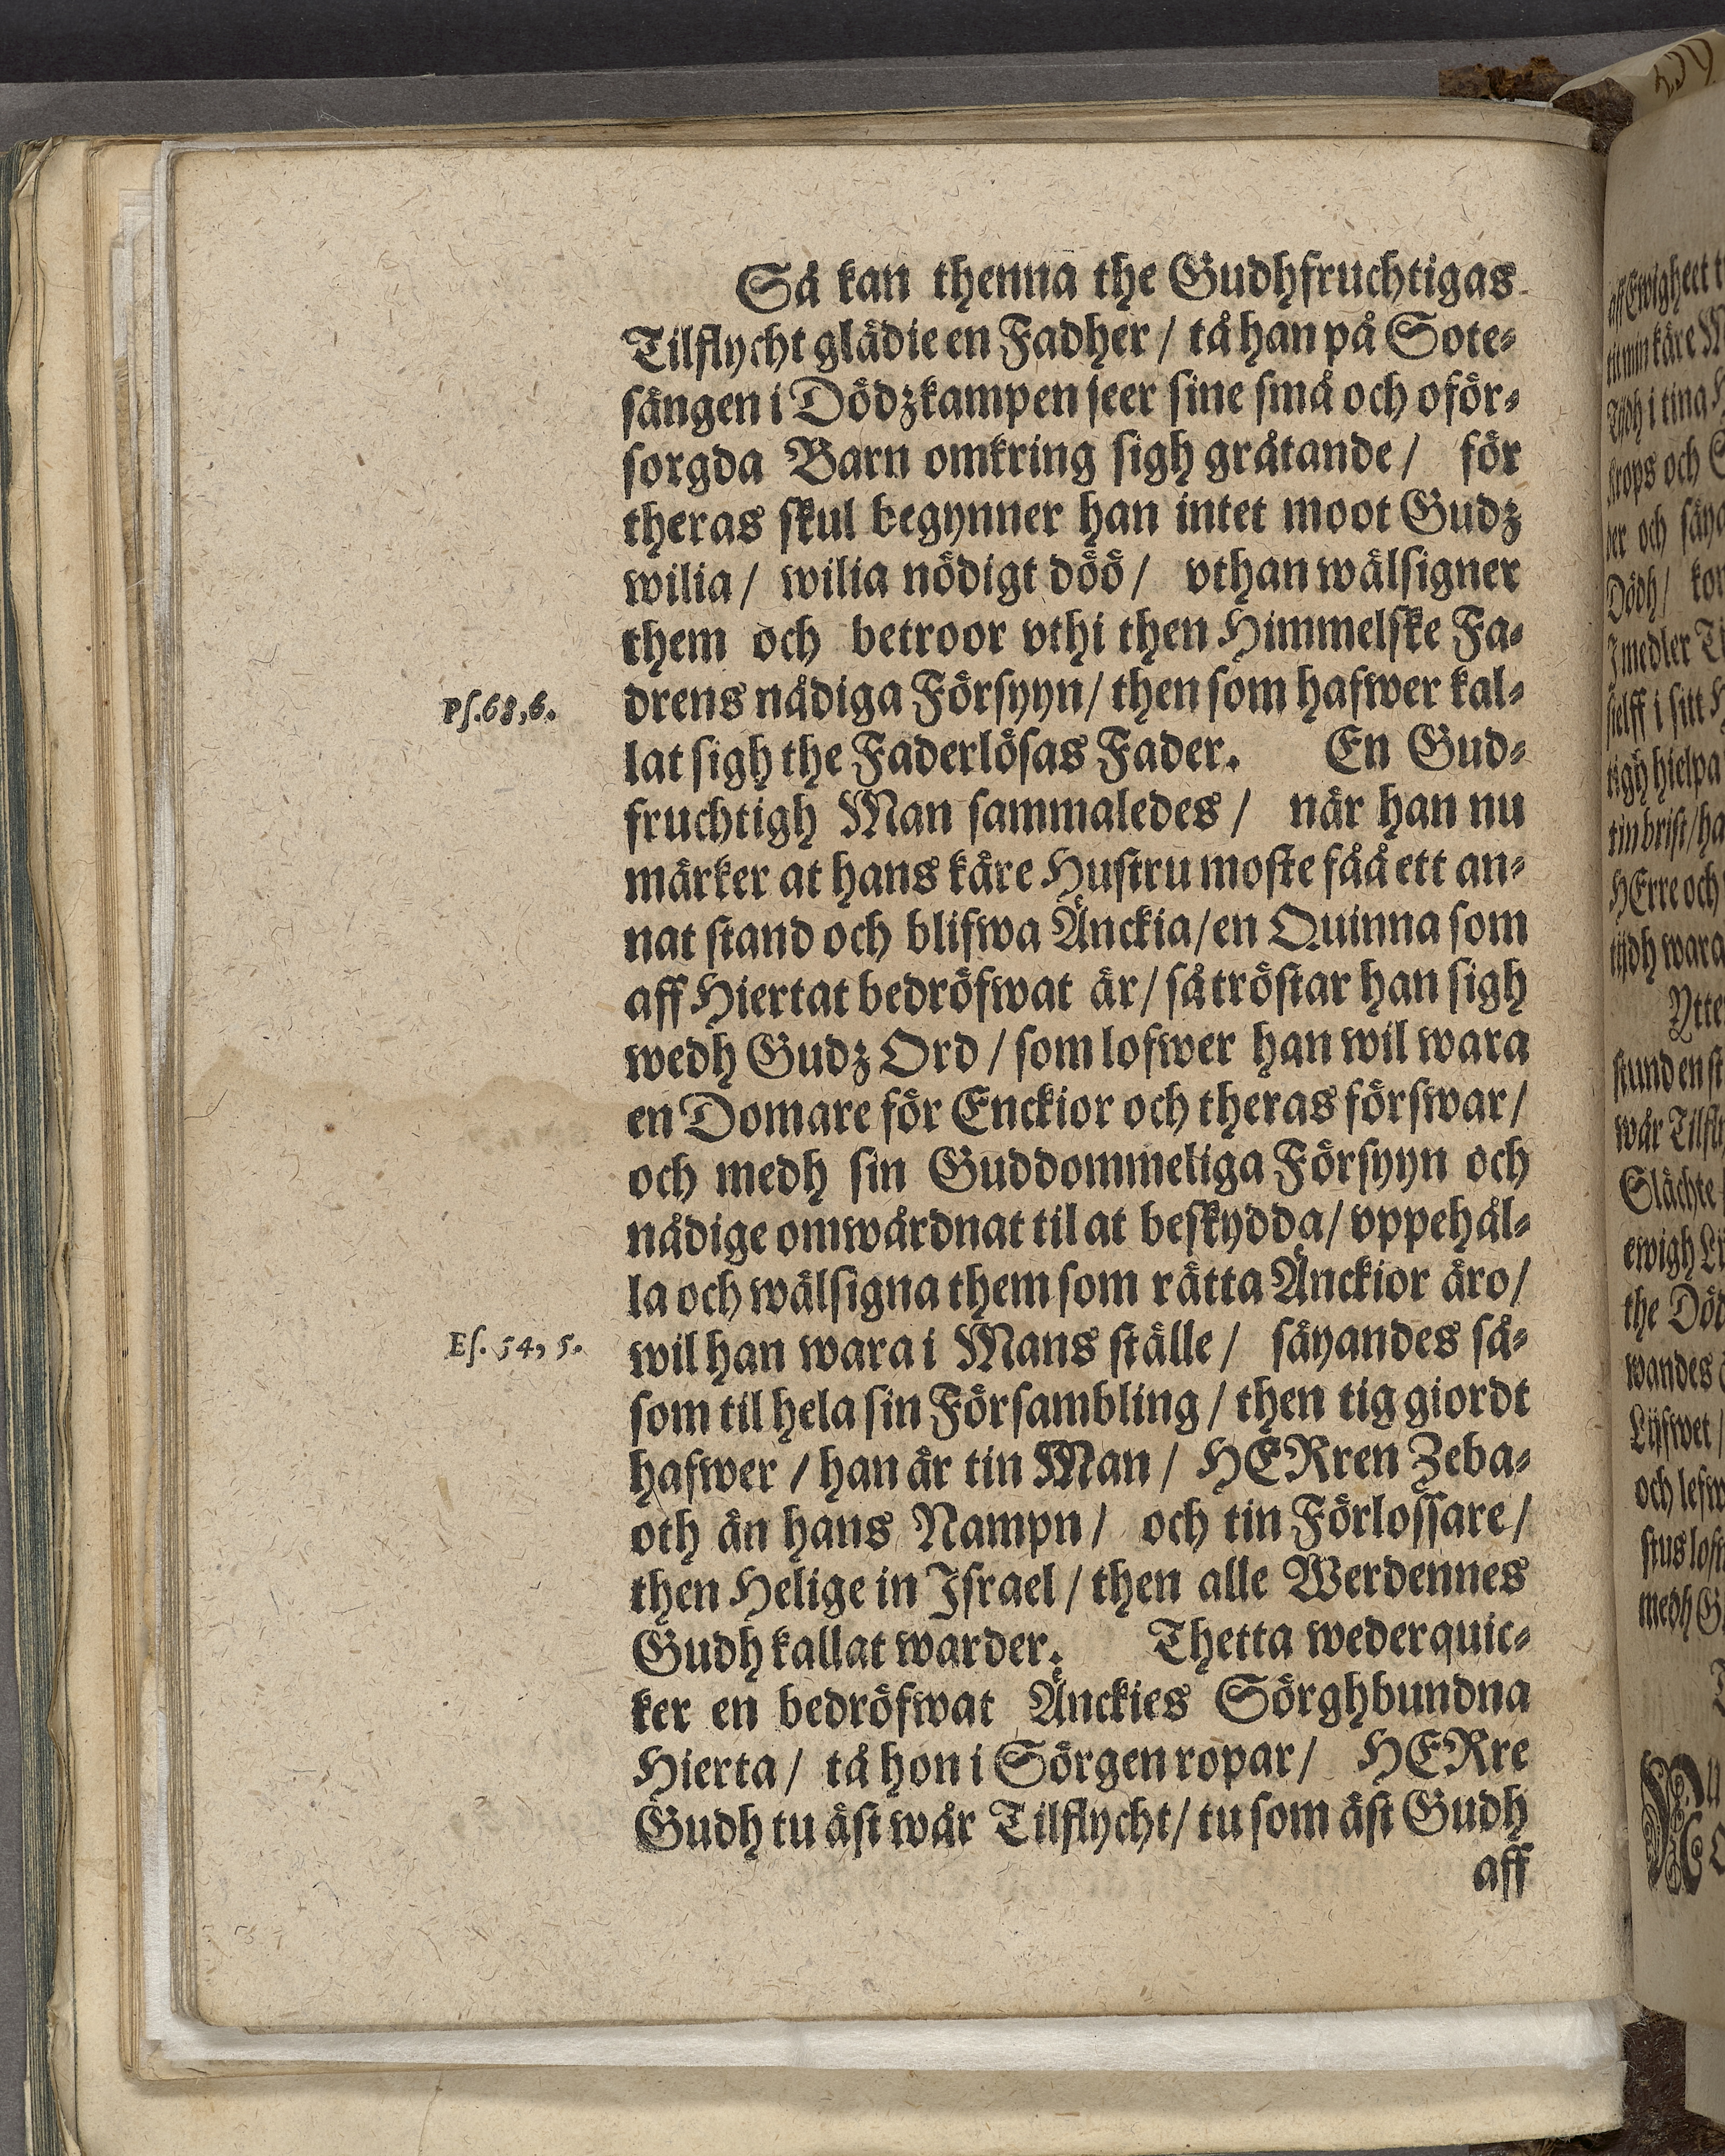 Så kan thenna the Gudhfruchtigas
Tilflycht glädie en Fadher / tå han på Sote-
sängen i Dödzkampen seer sine små och oför-
sorgda Barn omkring sigh gråtande / för
theras skul begynner han intet moot Gudz
wilia / wilia nödigt döö / vthan wälsigner
them och betroor vthi then Himmelske Fa-
Ps. 68, 6.
drens nådiga Försyyn / then som hafwer kal-
lat sigh the Faderlösas Fader. En Gud-
fruchtigh Man sammaledes / när han nu
märker at hans käre Hustru moste fåå ett an-
nat stand och blifwa Änckia / en Quinna som
aff Hiertat bedröfwat är / så tröstar han sigh
wedh Gudz Ord / som lofwer han wil wara
en Domare för Enckior och theras förswar /
och medh sin Guddommeliga Försyyn och
nådige omwårdnat til at beskydda / vppehål-
la och wälsigna them som rätta Änckior äro /
Es. 54, 5.
wil han wara i Mans ställe / säyandes så-
som til hela sin Försambling / then tig giordt
hafwer / han är tin Man / HERren Zeba-
oth än hans Nampn / och tin Förlossare /
then Helige in Israel / then alle Werdennes
Gudh kallat warder. Thetta wederquic-
ker en bedröfwat Änckies Sörghbundna
Hierta / tå hon i Sörgen ropar / HERre
Gudh tu äst wår Tilflycht / tu som äst Gudh
aff
aff Ewigheet
tit min käre
Tijdh i tina
krops och
der och
Dödh /
Imedler
sielff i sitt
tigh hielpa
tin brist / ha
HErre och
tijdh wara
Ytte
stund en
wår Tilfl
Slächte
ewigh
the Död
wandes
Lijfwet /
och lefw
stus
medh
Nu